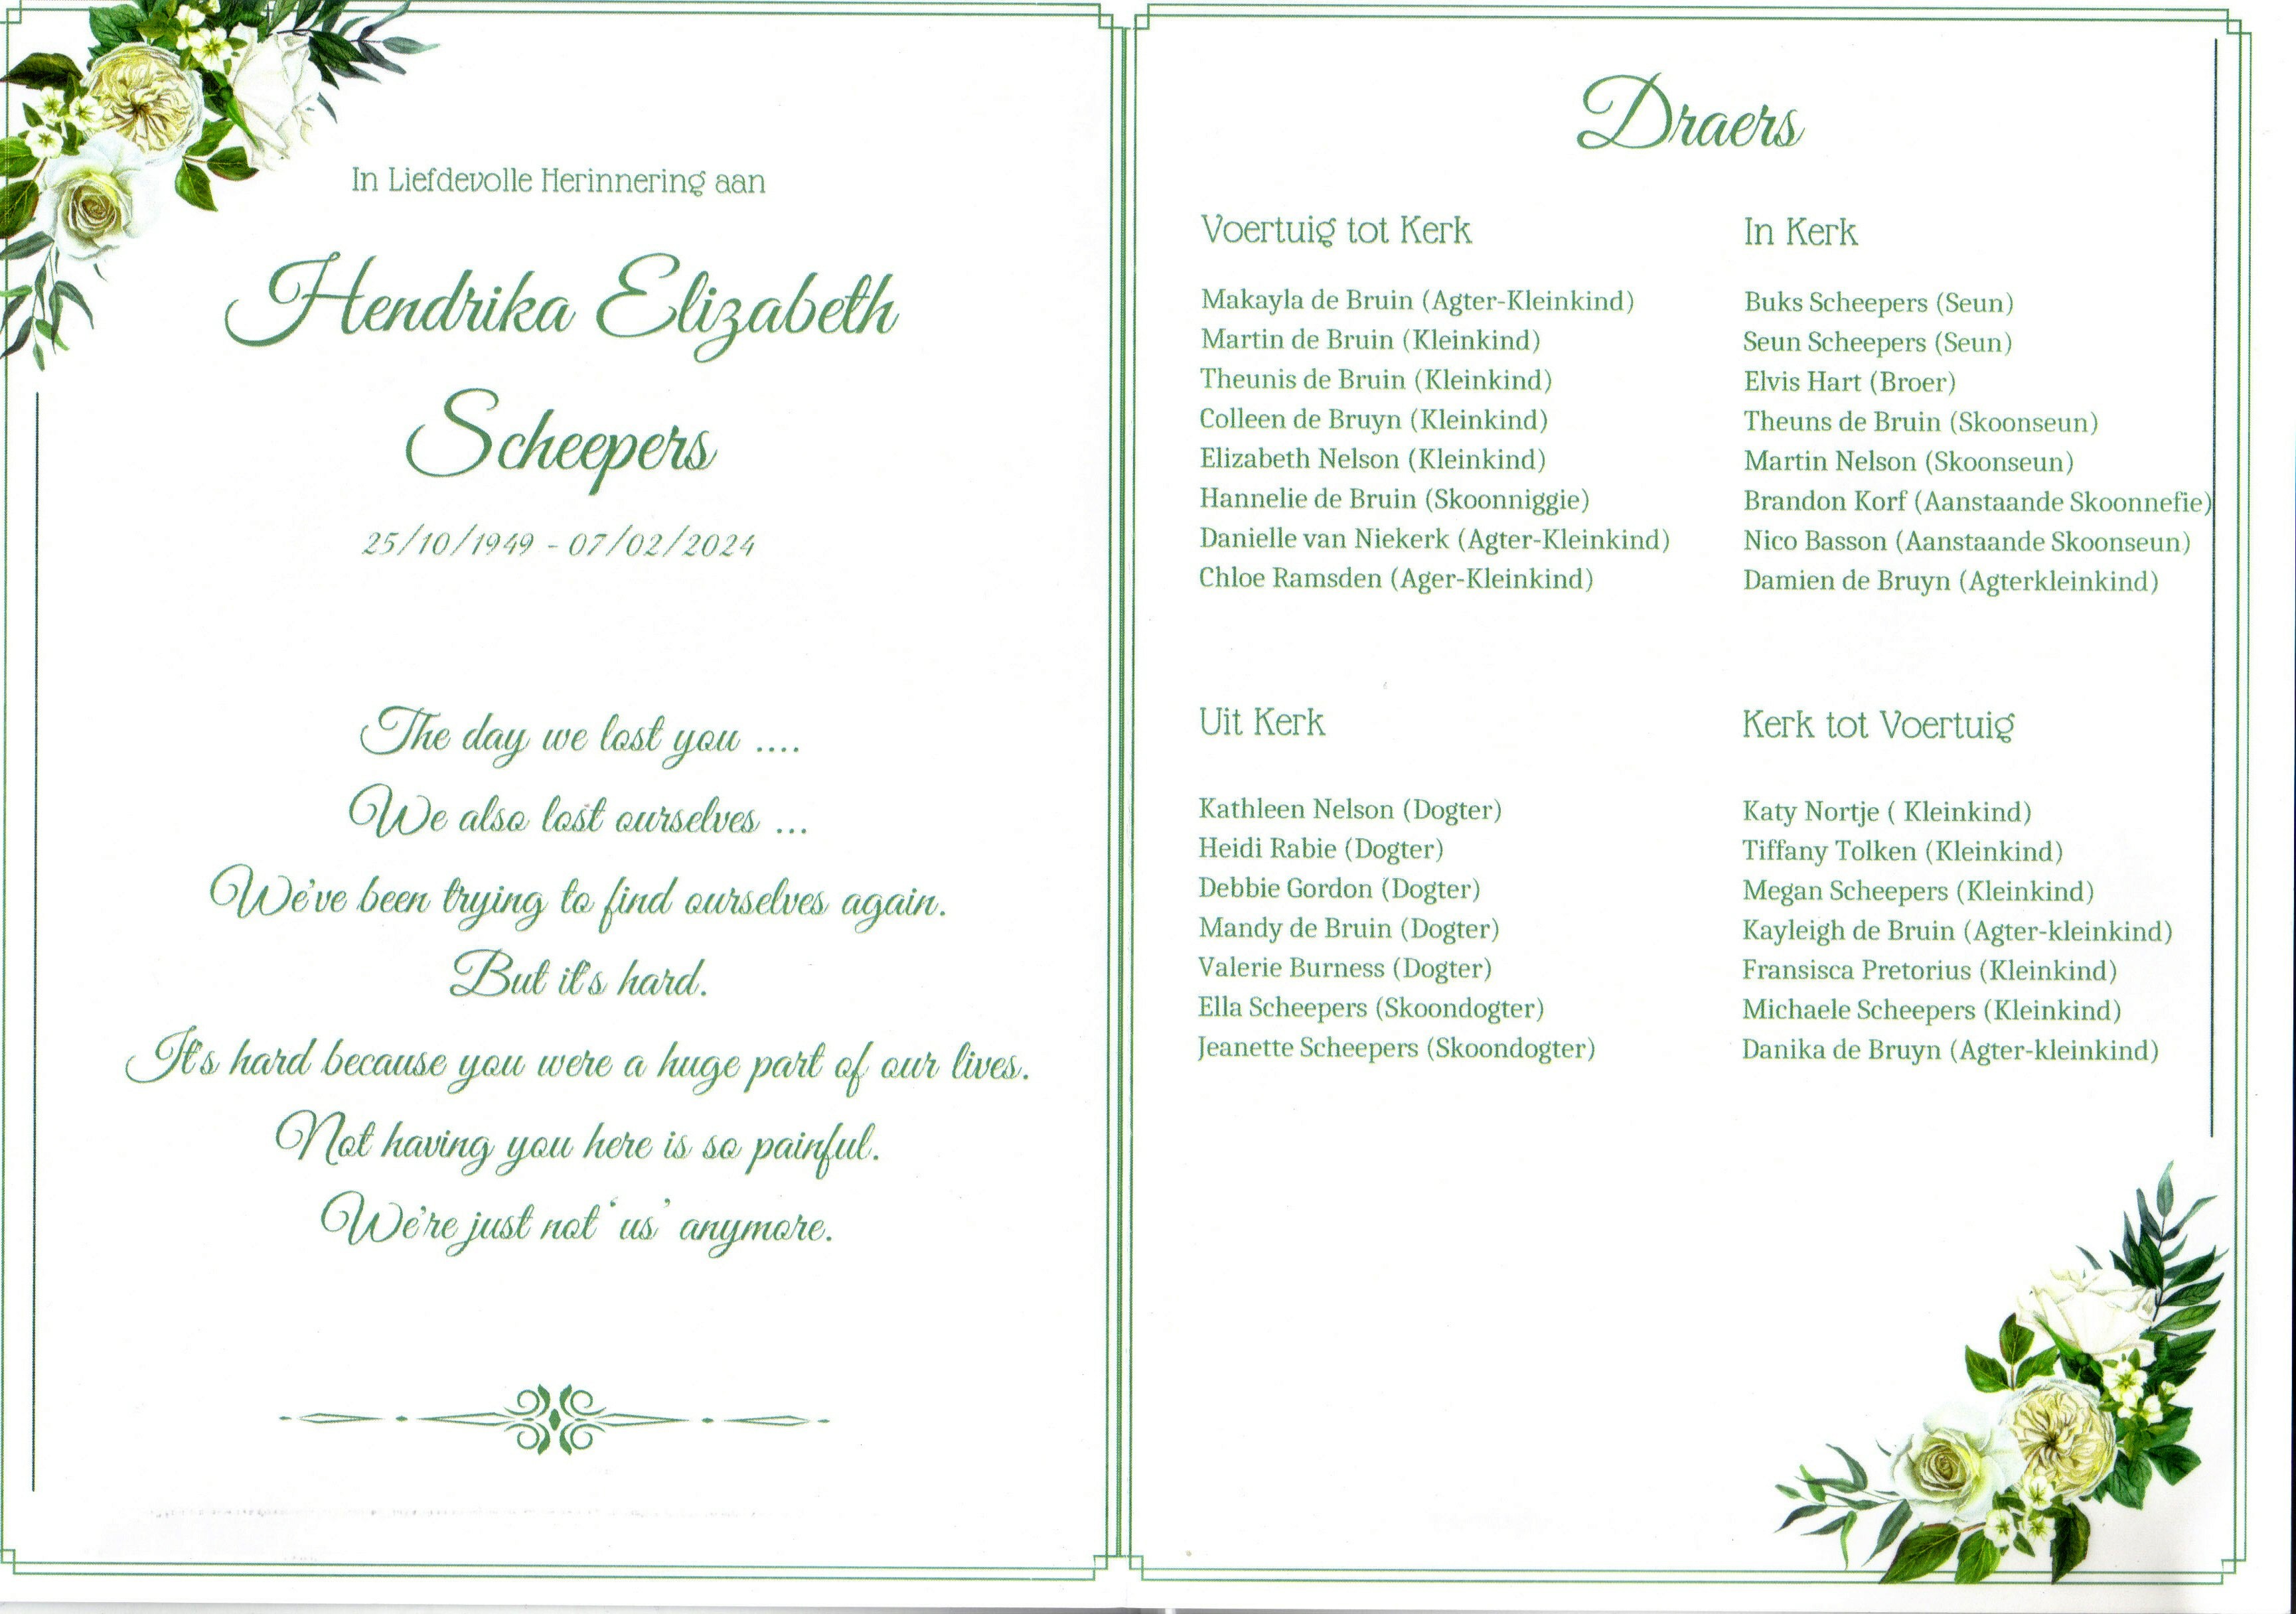 In Liefdevolle Herinnering aan
Hendrika Elizabeth
Scheepers
25/10/1949 - 07/02/2024
The day we lost you ....
We also lost ourselves ...
We've been trying to find ourselves again.
But it's hard.
It's hard because you were a huge part of our lives.
Not having you here is so painful.
We're just not 'us' anymore.
Draers
Voertuig tot Kerk
Makayla de Bruin (Agter-Kleinkind)
Martin de Bruin (Kleinkind)
Theunis de Bruin (Kleinkind)
Colleen de Bruyn (Kleinkind)
Elizabeth Nelson (Kleinkind)
Hannelie de Bruin (Skoonniggie)
Danielle van Niekerk (Agter-Kleinkind)
Chloe Ramsden (Ager-Kleinkind)
In Kerk
Buks Scheepers (Seun)
Seun Scheepers (Seun)
Elvis Hart (Broer)
Theuns de Bruin (Skoonseun)
Martin Nelson (Skoonseun)
Brandon Korf (Aanstaande Skoonnefie)
Nico Basson (Aanstaande Skoonseun)
Damien de Bruyn (Agterkleinkind)
Uit Kerk
Kathleen Nelson (Dogter)
Heidi Rabie (Dogter)
Debbie Gordon (Dogter)
Mandy de Bruin (Dogter)
Valerie Burness (Dogter)
Ella Scheepers (Skoondogter)
Jeanette Scheepers (Skoondogter)
Kerk tot Voertuig
Katy Nortje ( Kleinkind)
Tiffany Tolken (Kleinkind)
Megan Scheepers (Kleinkind)
Kayleigh de Bruin (Agter-kleinkind)
Fransisca Pretorius (Kleinkind)
Michaele Scheepers (Kleinkind)
Danika de Bruyn (Agter-kleinkind)